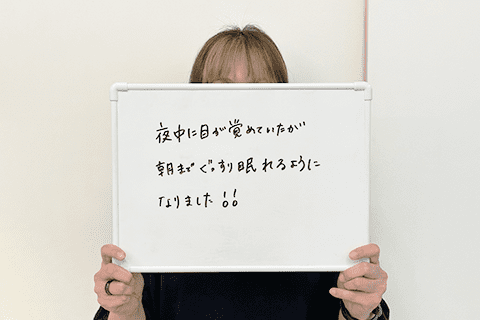 夜中に目が覚めていたが
朝までぐっすり眠れるように
なりました!!